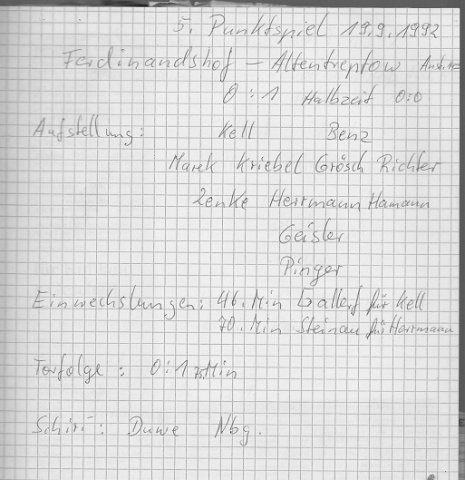 5. Punktspiel 19.9.1992
Ferdinandshof – Altentreptow
0:1 Halbzeit 0:0
Aufstellung: Kell Benz
Marek Kriebel Grösch Richter
Zenke Herrmann Hamann
Geisler
Pinger
Einwechslungen: 46. Min Gallert für Kell
70. Min Steinau für Herrmann
Torfolge: 0:1 Min
Schiri: Duwe Nbg.